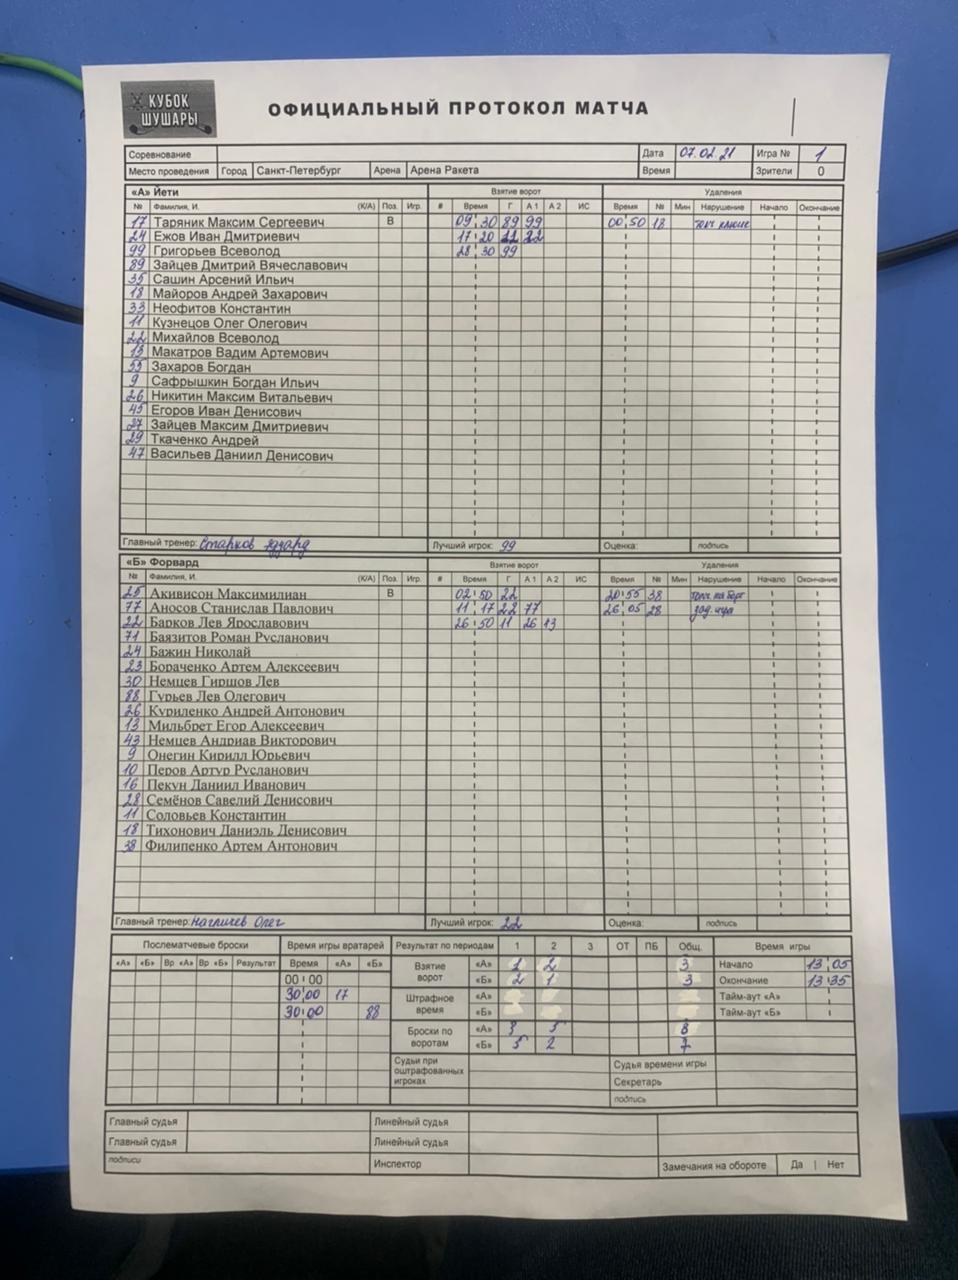 КУБОК ШУШАРЫ
ОФИЦИАЛЬНЫЙ ПРОТОКОЛ МАТЧА
Соревнование Дата 07.02.21 Игра № 1
Место проведения Город Санкт-Петербург Арена Арена Ракета Время Зрители 0
«А» Йети Взятие ворот Удаления
№ Фамилия, И. (К/А) Поз. Игр. # Время Г А 1 А 2 ИС Время № Мин Нарушение Начало Окончание
17 Таряник Максим Сергеевич В 09 30 89 99 00 50 18 толч клюшк
24 Ежов Иван Дмитриевич 17 20 11 22
99 Григорьев Всеволод 28 30 99
89 Зайцев Дмитрий Вячеславович
35 Сашин Арсений Ильич
18 Майоров Андрей Захарович
33 Неофитов Константин
11 Кузнецов Олег Олегович
22 Михайлов Всеволод
13 Макатров Вадим Артемович
55 Захаров Богдан
9 Сафрышкин Богдан Ильич
26 Никитин Максим Витальевич
45 Егоров Иван Денисович
27 Зайцев Максим Дмитриевич
29 Ткаченко Андрей
47 Васильев Даниил Денисович
Главный тренер: Старков Эдуард Лучший игрок: 99 Оценка: подпись
«Б» Форвард Взятие ворот Удаления
№ Фамилия, И. (К/А) Поз. Игр. # Время Г А 1 А 2 ИС Время № Мин Нарушение Начало Окончание
25 Акивисон Максимилиан В 02 50 22 20 55 38 толч на борт
77 Аносов Станислав Павлович 11 17 22 77 26 05 28 зад. игра
22 Барков Лев Ярославович 26 50 11 26 13
71 Баязитов Роман Русланович
24 Бажин Николай
23 Бораченко Артем Алексеевич
30 Немцев Гиршов Лев
88 Гурьев Лев Олегович
26 Куриленко Андрей Антонович
13 Мильбрет Егор Алексеевич
43 Немцев Андриав Викторович
9 Онегин Кирилл Юрьевич
10 Перов Артур Русланович
16 Пекун Даниил Иванович
28 Семёнов Савелий Денисович
11 Соловьев Константин
18 Тихонович Даниэль Денисович
38 Филипенко Артем Антонович
Главный тренер: Олег Лучший игрок: 22 Оценка: подпись
Послематчевые броски Время игры вратарей Результат по периодам 1 2 3 ОТ ПБ Общ. Время игры
«А» «Б» Вр «А» Вр «Б» Результат Время «А» «Б» Взятие ворот «А» 1 2 3 Начало 13 05
00 00 «Б» 2 1 3 Окончание 13 35
30 00 17 Штрафное время «А» Тайм-аут «А»
30 00 88 «Б» Тайм-аут «Б»
Броски по воротам «А» 3 5 8
«Б» 5 2 7
Судьи при оштрафованных игроках Судья времени игры
Секретарь
подпись
Главный судья Линейный судья
Главный судья Линейный судья
подписи Инспектор Замечания на обороте Да | Нет